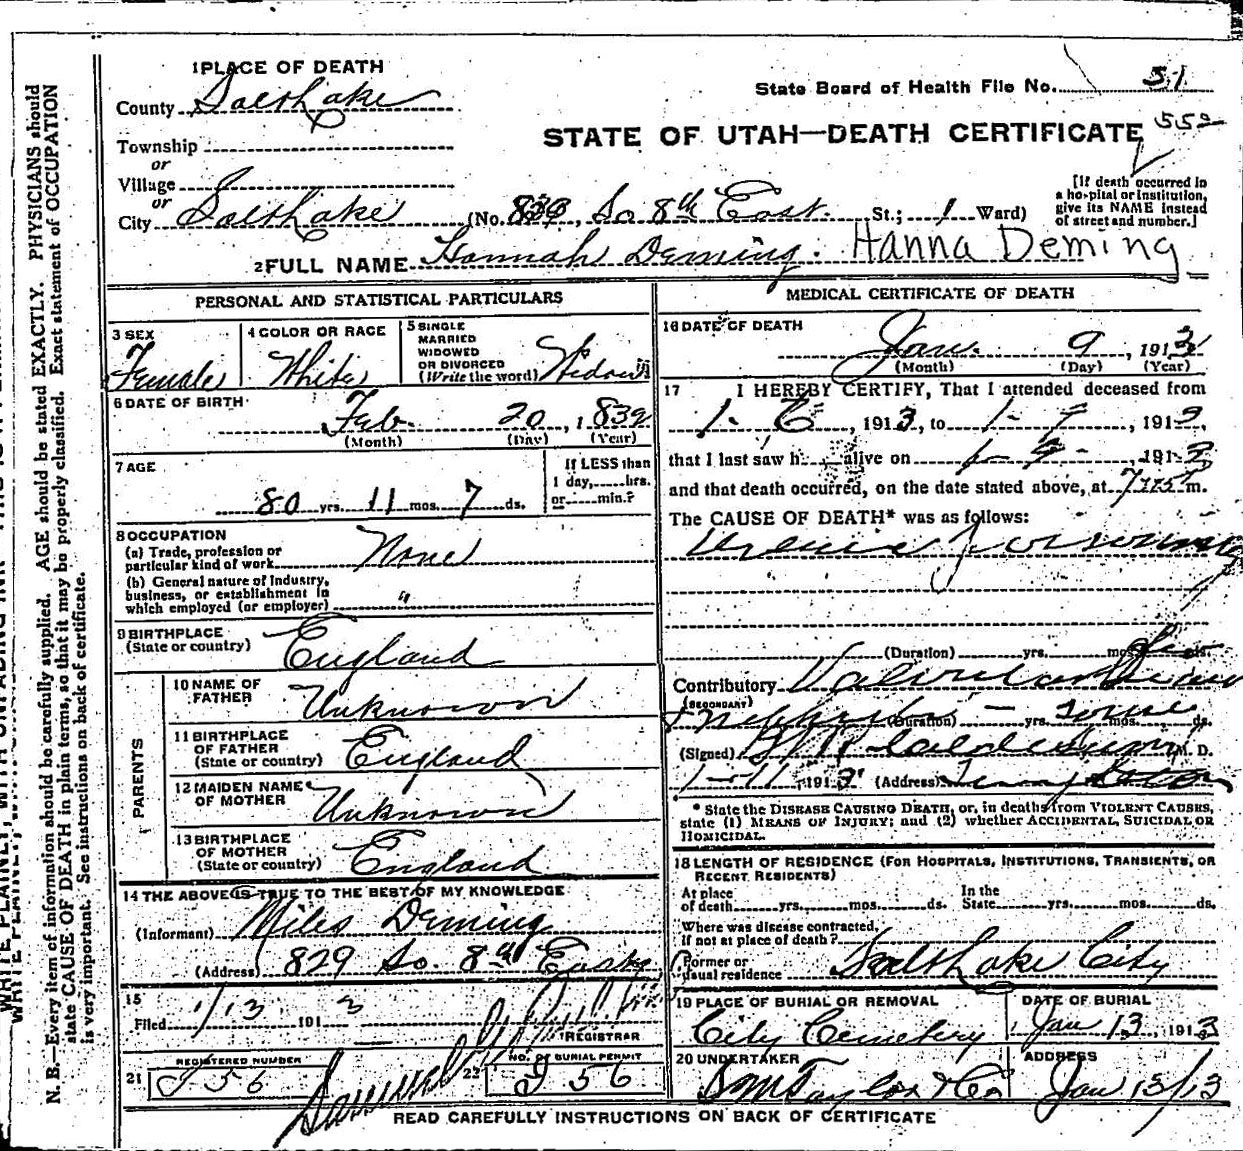 1 PLACE OF DEATH
County Salt Lake
State Board of Health File No. 51
552
Township
or
Village
or
City Salt Lake (No. 839, So 8th East St.; 1 Ward)
STATE OF UTAH—DEATH CERTIFICATE
[If death occurred in a hospital or institution, give its NAME instead of street and number.]
2 FULL NAME Hannah Deming. Hanna Deming
PERSONAL AND STATISTICAL PARTICULARS
3 SEX
Female
4 COLOR OR RACE
White
5 SINGLE
MARRIED
WIDOWED
OR DIVORCED
(Write the word) Widow
6 DATE OF BIRTH
Feb. 20, 1832
(Month) (Day) (Year)
7 AGE
80 yrs. 11 mos. 7 ds.
If LESS than
1 day, hrs.
or min.?
8 OCCUPATION
(a) Trade, profession or
particular kind of work None
(b) General nature of Industry,
business, or establishment in
which employed (or employer) "
9 BIRTHPLACE
(State or country) England
PARENTS
10 NAME OF
FATHER Unknown
11 BIRTHPLACE
OF FATHER
(State or country) England
12 MAIDEN NAME
OF MOTHER Unknown
13 BIRTHPLACE
OF MOTHER
(State or country) England
14 THE ABOVE IS TRUE TO THE BEST OF MY KNOWLEDGE
(Informant) Miles Deming
(Address) 829 So. 8th East
15
Filed 1/13 1913
REGISTRAR
REGISTERED NUMBER
21 J 56
NO. OF BURIAL PERMIT
22 J 56
MEDICAL CERTIFICATE OF DEATH
16 DATE OF DEATH
Jan. 9, 1913
(Month) (Day) (Year)
17 I HEREBY CERTIFY, That I attended deceased from
1-6, 1913, to 1-9, 1913,
that I last saw h alive on 1-9-, 1913
and that death occurred, on the date stated above, at 7 m.
The CAUSE OF DEATH* was as follows:
(Duration) yrs. mos. ds.
Contributory Valvular
(SECONDARY)
(Duration) — yrs. some mos. ds.
(Signed) M. D.
1-11, 1913 (Address)
* State the DISEASE CAUSING DEATH, or, in deaths from VIOLENT CAUSES,
state (1) MEANS OF INJURY; and (2) whether ACCIDENTAL, SUICIDAL OR
HOMICIDAL.
18 LENGTH OF RESIDENCE (FOR HOSPITALS, INSTITUTIONS, TRANSIENTS, OR
RECENT RESIDENTS)
At place
of death yrs. mos. ds.
In the
State yrs. mos. ds.
Where was disease contracted,
if not at place of death?
Former or
usual residence Salt Lake City
19 PLACE OF BURIAL OR REMOVAL
City Cemetery
DATE OF BURIAL
Jan 13, 1913
20 UNDERTAKER
Taylor & Co
ADDRESS
Jan 13/13
READ CAREFULLY INSTRUCTIONS ON BACK OF CERTIFICATE
N. B.—Every item of information should be carefully supplied. AGE should be stated EXACTLY. PHYSICIANS should
state CAUSE OF DEATH in plain terms, so that it may be properly classified. Exact statement of OCCUPATION
is very important. See instructions on back of certificate.